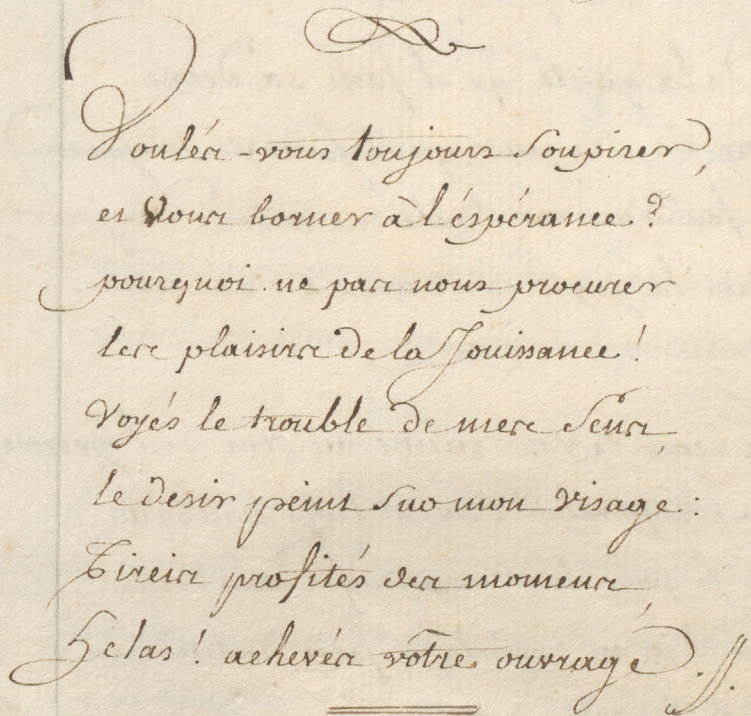 Voulés-vous toujours Soupirer,
et vous borner à l'éspérance?
pourquoi ne pas nous procurer
les plaisirs de la Jouissance!
Voyés le trouble de mes Sens,
le desir peint sur mon visage:
Tircis profités des momens,
Helas! achevés votre ouvrage.